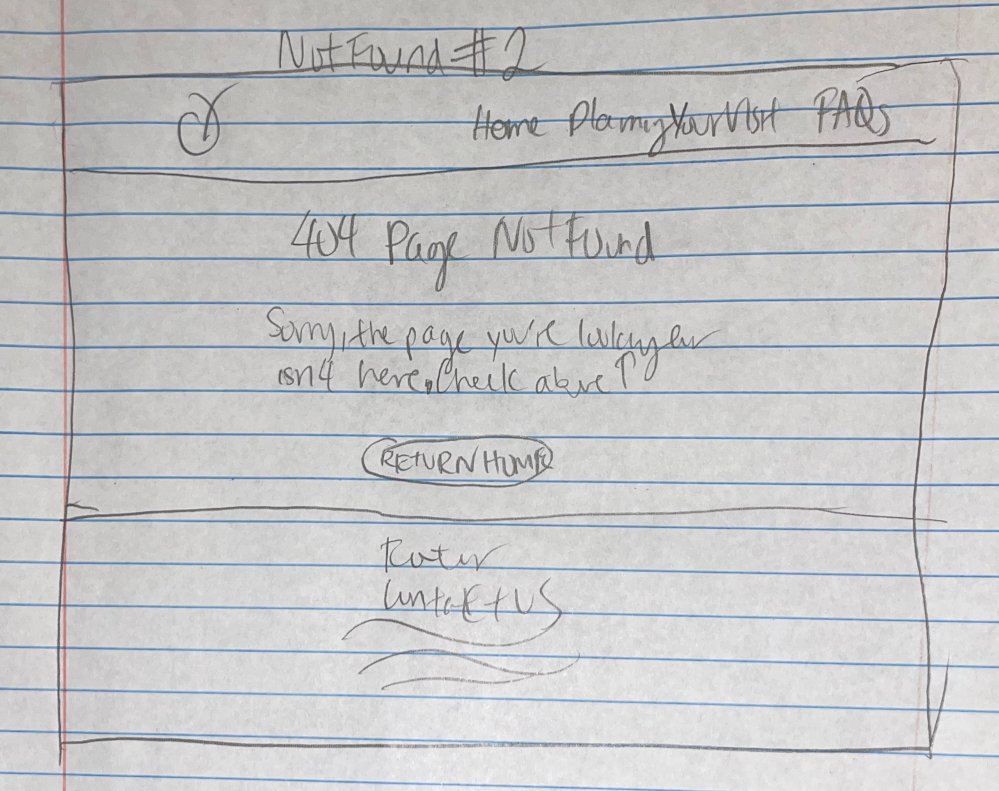 Not Found #2
Home Planning Your Visit FAQs
404 Page Not Found
Sorry, the page you're looking for
isn't here. Check above ↑
RETURN HOME
Footer
Contact US